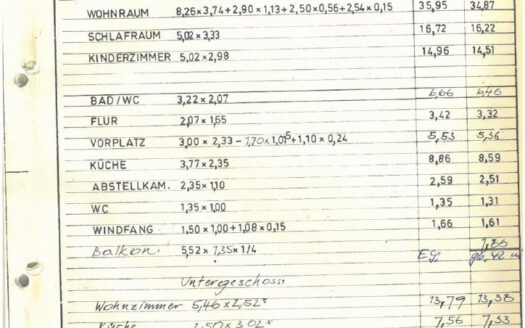 WOHNRAUM 8,26×3,74+2,90×1,13+2,50×0,56+2,54×0,15 35,95 34,87
SCHLAFRAUM 5,02×3,33 16,72 16,22
KINDERZIMMER 5,02×2,98 14,96 14,51
BAD/WC 3,22×2,07 6,66 6,46
FLUR 2,07×1,65 3,42 3,32
VORPLATZ 3,00 × 2,33 – 1,70×1,01⁵+1,10×0,24 5,53 5,36
KÜCHE 3,77×2,35 8,86 8,59
ABSTELLKAM. 2,35×1,10 2,59 2,51
WC 1,35×1,00 1,35 1,31
WINDFANG 1,50×1,00+1,08×0,15 1,66 1,61
Balkon 5,52 × 1,35×1/4 1,86
EG
Untergeschoss
Wohnzimmer 5,46×2,52⁵ 13,79 13,38
Küche 2,50×3,02⁵ 7,56 7,33